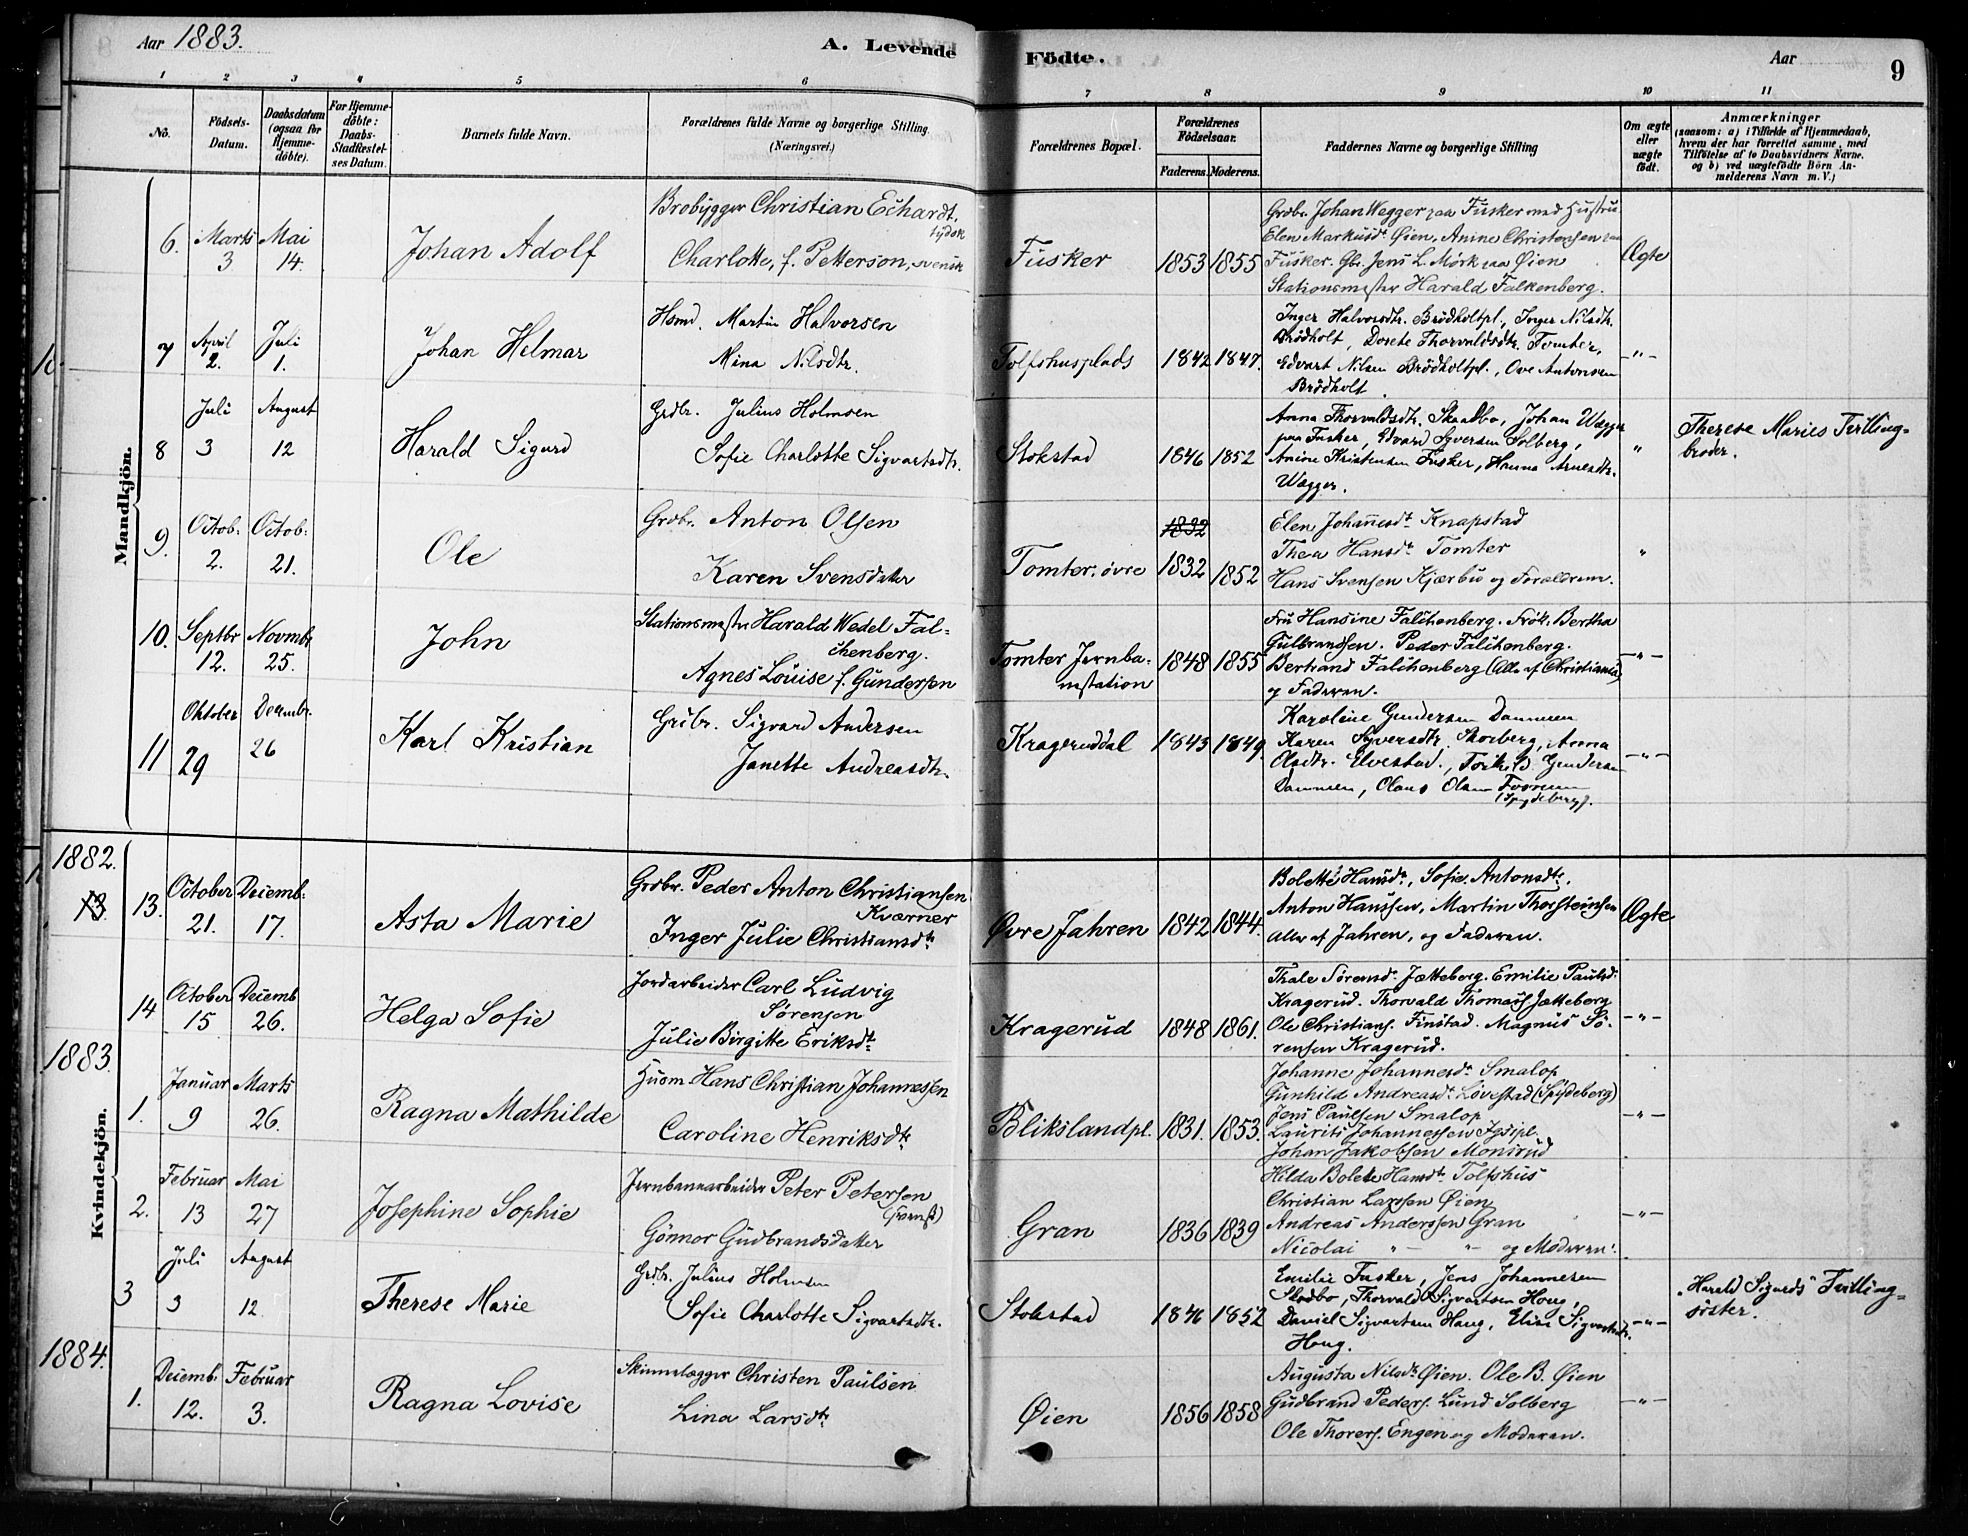 Aar 1883.
A. Levende
Födte.
Aar
9
1 2 3 4 5 6
7 8 9 10 11
No.
Födsels-
Datum.
Daabsdatum
(ogsaa for
Hjemme-
döbte).
For Hjemme-
döbte:
Daabs-
Stadfæstel-
ses Datum.
Barnets fulde Navn.
Forældrenes fulde Navne og borgerlige Stilling.
(Næringsvei.)
Forældrenes Bopæl.
Forældrenes
Födselsaar.
Faderens. Moderens.
Faddernes Navne og borgerlige Stilling
Om ægte
eller
uægte
födt.
Anmærkninger
(saasom: a) i Tilfælde af Hjemmedaab,
hvem der har forrettet samme, med
Tilföielse af to Daabsvidners Navne,
og b) ved uægtefödte Börn An-
melderens Navn m. V.)
Mandkjön.
6. Marts 3 Mai 14.
Johan Adolf
Brobygger Christian Echardt,
tydsk
Charlotte, f. Petterson, svensk
Fusker
1853 1855
Grdbr. Johan Wegger paa Fusker med Hustru
Elen Markusdt. Øien, Anine Christensen paa
Fusker. Gbr. Jens L. Mørk paa Øien
Stationsmester Harald Falkenberg.
Ægte
7 April 2. Juli 1.
Johan Helmar
Hsmd. Martin Halvorsen
Mina Nilsdtr.
Tolfshusplads
1842 1847.
Inger Halvorsdtr. Brödholtpl., Inger Nilsdtr.
Brödholt, Dorete Thorvaldsdtr. Tomter,
Edvart Nilsen Brödholtpl., Ove Antonsen
Brödholt.
-"-
8 Juli 3 August 12
Harald Sigurd
Grdbr. Julius Holmsen
Sofie Charlotte Sigvartsdtr.
Stokstad
1846 1852
Anna Thorvaldsdtr. Skaalbo, Johan Wegger
paa Fusker, Edvard Syversen Solberg,
Anine Kristensen Fusker, Hanna Arnesdtr.
Wegger.
"
Therese Maries Tvilling-
broder.
9. Octob: 2. Octob: 21.
Ole
Grdbr. Anton Olsen
Karen Svensdatter
Tomter. övre
1832
1832 1852
Elen Johannesdt Knapstad
Thea Hansdt Tomter
Hans Svensen Kjærbu og Foraldrene.
"
10. Septbr 12. Novmbr 25.
John
Stationsmester Harald Wedel Fal-
chenberg.
Agnes Louise f. Gundersen
Tomter Jernba-
nestation
1848 1855
Fru Hansine Falchenberg. Frøk. Bertha
Gulbrandsen. Peder Falchenberg.
Bertrand Falchenberg (Alle af Christiania)
og Faderen.
-"-
11 Oktober 29 Decembr. 26
Karl Kristian
Grdbr. Sigvard Andersen
Janette Andreasdtr.
Krageruddal
1843 1849.
Karoline Gundersen Dammen
Karen Syversdtr. Skorberg, Anna
Olsdtr. Elvestad., Torkild Gundersen
Dammen, Olaus Olsen Fossum
(Spydeberg).
-"-
1882.
13.
Kvindekjön.
13. October 21. Decemb: 17.
Asta Marie
Grdbr. Peder Anton Christiansen
Kværner
Inger Julie Christiansdt
Øvre Jahren
1842 1844.
Bolette Hansdt., Sofie Antonsdt.,
Anton Hanssen, Martin Thorsteinsen
Alle af Jahren, og Faderen.
Ægte
14 October 15 Decemb 26.
Helga Sofie
Jordarbeider Carl Ludvig
Sørensen
Julie Birgitte Eriksdt
Kragerud
1848 1861.
Thale Sørensdt. Jætteberg. Emilie Paulsdt.
Kragerud. Thorvald Thomass. Jætteberg
Ole Christians. Finstad. Magnus Sö-
rensen Kragerud.
-"-
1883.
1. Januar 9 Marts 26.
Ragna Mathilde
Husm Hans Christian Johannessen
Caroline Henriksdt
Blikslandpl.
1831. 1853.
Johanne Johannesdt. Smalop
Gunhild Andreasdt. Løvestad (Spydeberg)
Jens Paulsen Smalop
Laurits Johannessen
Johan Jakobsen Monsrud
-"-
2. Februar 13 Mai 27
Josephine Sophie
Jernbanearbeider Peter Petersen
(Svensk)
Gönnor Gudbrandsdatter
Gran
1836 1839
Hilda Bolette Hansdt. Tolfshus
Christian Larssen Øien
Andreas Anderssen Gran
Nicolai " - " - og Moderen.
-"-
3 Juli 3 August 12
Therese Marie
Grdbr. Julius Holmsen
Sofie Charlotte Sigvartsdtr.
Stokstad
1846 1852
Emilie Fusker, Jens Johannesen
Slodbo, Thorvald Sigvartsen Houg,
Daniel Sigvartsen Haug, Elise Sigvartsdtr.
Houg.
-"-
"Harald Sigurds" Tvilling-
söster.
1884.
1. Decemb. 12. Februar 3.
Ragna Lovise
Skinnelægger Christen Paulsen
Lina Larsdt
Øien
1856 1858
Augusta Nilsdt. Øien. Ole B. Øien
Gudbrand Peders. Lund. Solberg
Ole Thorers. Engen og Moderen.
-"-